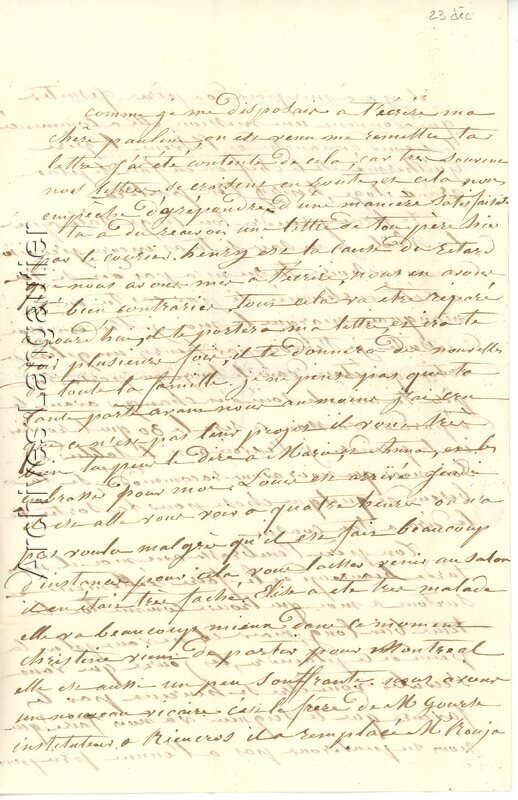 23 déc
comme je me disposais a t'écrire ma
chère pauline, on est venu me remettre ta
lettre, j'ai été contente de cela, car tres souvent
nos lettres se croisent en route, et cela nous
empêche d'y répondre d'une manière satisfaisante
ta a du recevoir une lettre de ton père hier
par le courier. henry est la cause du retard
nous avons mis a t'écrire, nous en avons
bien contrarié, tout cela va etre réparé
aujourd'hui, il te portera ma lettre, et ira te
plusieurs fois, il te donnera de nouvelles
toute la famille. je ne pense pas que ta
tante parte avant nous au moins j'ai cru
que ce n'est pas leur projet il vous très
bien tu peux le dire a Maria et Anna, et les
embrasser pour moi. Louis est arrivé jeudi
est allé vous voir a quatre heures on n'a
pas voulu malgré qu'il est fait beaucoup
d'instances pour cela vous laisser venir au salon
il en était tres faché. Elise a été tres malade
elle va beaucoup mieux dans le moment
christine vient de partir pour Montreal
elle est aussi un peu souffrante. nous avons
un nouveau vicaire c'est le frère de M gourse
instituteur a Rieucros il a remplacé M Rouja
Archives Langautier